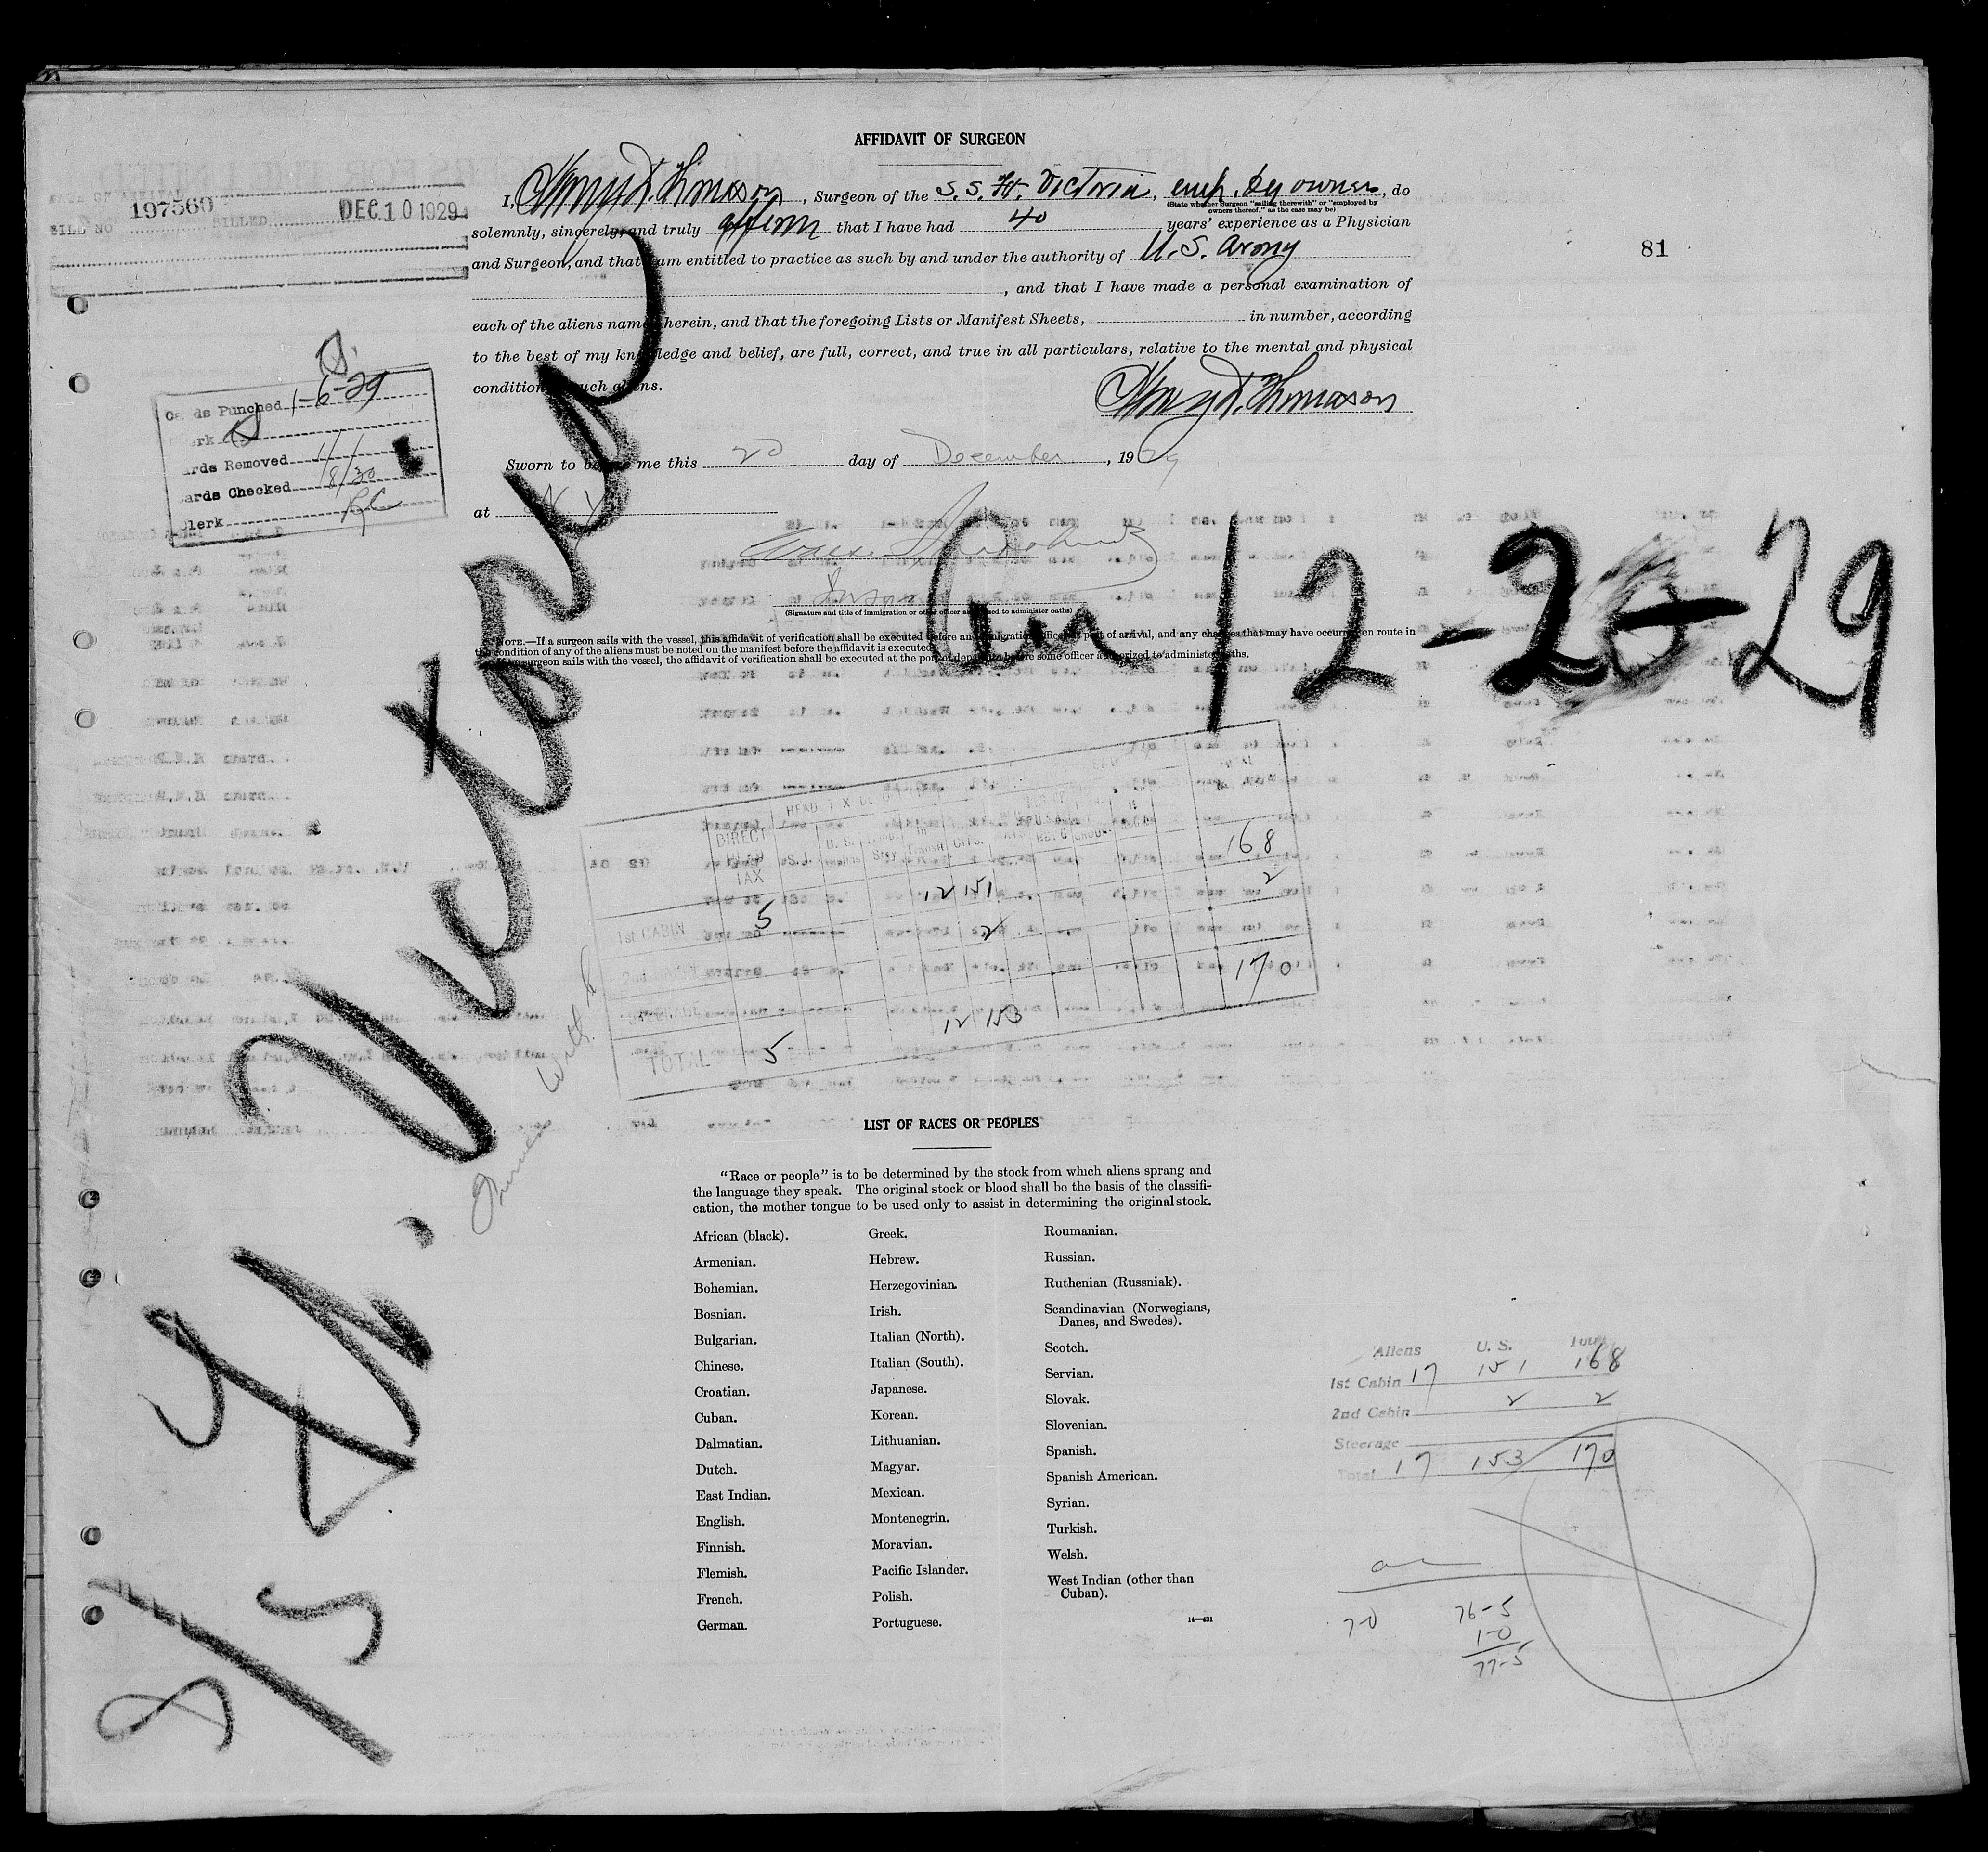 AFFIDAVIT OF SURGEON
I, Henry D. Thomason, Surgeon of the S.S. Ft. Victoria, emp. by owners, do
(State whether Surgeon "sailing therewith" or "employed by
owners thereof," as the case may be)
solemnly, sincerely, and truly affirm that I have had 40 years' experience as a Physician
and Surgeon, and that I am entitled to practice as such by and under the authority of U.S. Army
, and that I have made a personal examination of
each of the aliens named herein, and that the foregoing Lists or Manifest Sheets, in number, according
to the best of my knowledge and belief, are full, correct, and true in all particulars, relative to the mental and physical
condition of such aliens.
Henry D. Thomason
Sworn to before me this 20 day of December, 1929
at N Y
(Signature and title of immigration or other officer authorized to administer oaths)
NOTE.—If a surgeon sails with the vessel, this affidavit of verification shall be executed before an immigration officer at port of arrival, and any changes that may have occurred en route in
the condition of any of the aliens must be noted on the manifest before the affidavit is executed.
surgeon sails with the vessel, the affidavit of verification shall be executed at the port of departure before some officer authorized to administer oaths.
197560
BILL NO BILLED DEC 10 1929
81
Cards Punched 1-6-29
Clerk
Cards Removed
Cards Checked 1/8/30
Clerk
S/S Ft. Victoria
Arr 12-20-29
HEAD TAX
DIRECT HEAD TAX
U. S.
168
1st CABIN 5 12 151
2
2nd CABIN 2
170
TOTAL 5 12 153
LIST OF RACES OR PEOPLES
"Race or people" is to be determined by the stock from which aliens sprang and
the language they speak. The original stock or blood shall be the basis of the classifi-
cation, the mother tongue to be used only to assist in determining the original stock.
African (black).
Armenian.
Bohemian.
Bosnian.
Bulgarian.
Chinese.
Croatian.
Cuban.
Dalmatian.
Dutch.
East Indian.
English.
Finnish.
Flemish.
French.
German.
Greek.
Hebrew.
Herzegovinian.
Irish.
Italian (North).
Italian (South).
Japanese.
Korean.
Lithuanian.
Magyar.
Mexican.
Montenegrin.
Moravian.
Pacific Islander.
Polish.
Portuguese.
Roumanian.
Russian.
Ruthenian (Russniak).
Scandinavian (Norwegians,
Danes, and Swedes).
Scotch.
Servian.
Slovak.
Slovenian.
Spanish.
Spanish American.
Syrian.
Turkish.
Welsh.
West Indian (other than
Cuban).
14—431
Aliens U. S. Total
1st Cabin 17 151 168
2nd Cabin 2 2
Steerage
Total 17 153 170
7-0 76-5
1-0
77-5